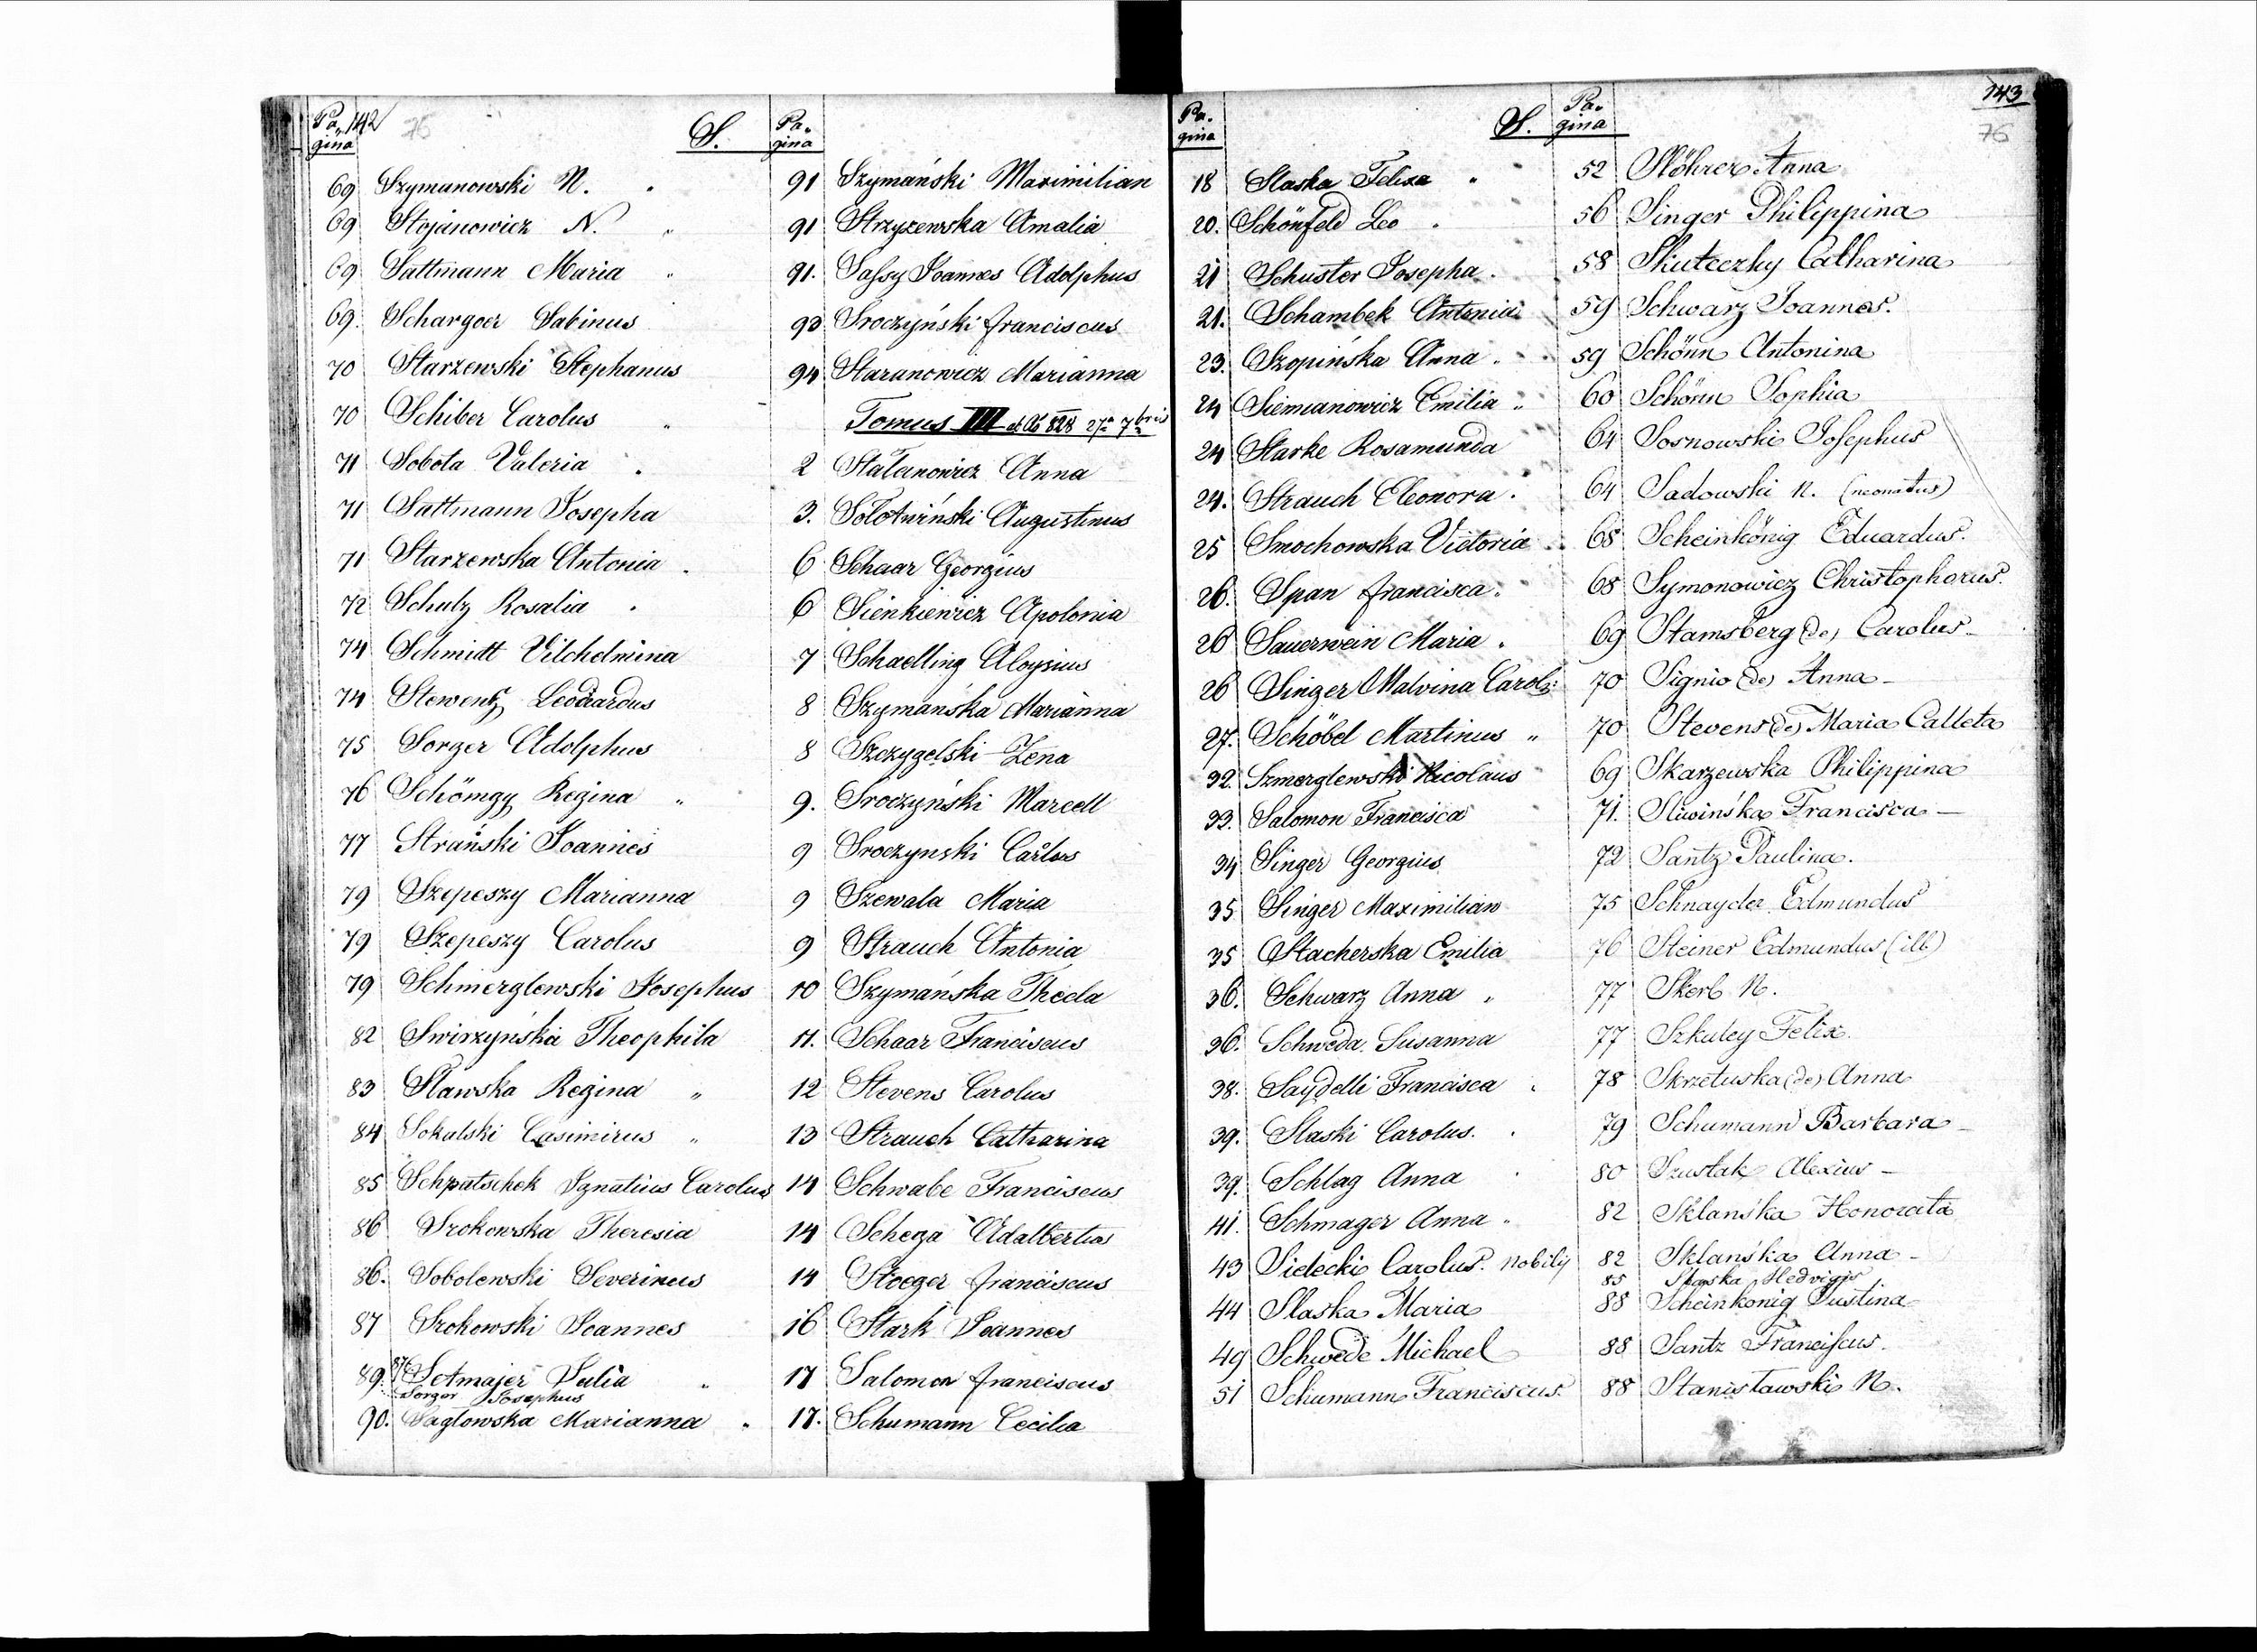 Pagina 142 75 S. Pagina
69 Szymanowski N.
69 Stojanowicz N. "
69 Sattmann Maria "
69. Schargoer Sabinus
70 Starzewski Stephanus
70 Schiber Carolus "
71 Sobota Valeria .
71 Sattmann Josepha
71 Starzewska Antonia .
72 Schulz Rosalia .
74 Schmidt Vilchelmina
74 Stewentz
75 Sorger Adolphus
76 Regina "
77 Strański Joannes
79 Szepeszy Marianna
79 Szepeszy Carolus
79 Schmerglewski Josephus
82 Swirzyńska Theophila
83 Sławska Regina "
84 Sokalski Casimirus "
85 Schpatschek Ignatius Carolus
86 Srokowska Theresia
86. Sobolewski Severinus
87 Srokowski Joannes
89. Sotmajer Julia "
Sorger Josephus
90. Marianna "
91 Szymański Maximilian
91 Strzyzewska Amalia
91. Saſsy Joannes Adolphus
93 Sroczyński franciscus
94 Staranowicz Marianna
Tomus III 828 27a 7bris
2 Anna
3. Sołotwiński Augustinus
6 Schaar Georgius
6 Sienkiewicz Apolonia
7 Schaelling Aloysius
8 Szymańska Marianna
8 Szczygelski Zena
9. Sroczyński Marcell
9 Sroczynski
9 Szewala Maria
9 Strauch Antonia
10 Szymańska Thecla
11. Schaar Franciscus
12 Stevens Carolus
13 Strauch Catharina
14 Schwabe Franciscus
14 Adalbertus
14 Stoeger franciscus
16 Stark Joannes
17 Salomon franciscus
17. Schumann Cecilia
Pagina S. Pagina 143 76
18 Slaska Felixa "
20. Schönfeld Leo .
21 Schuster Josepha .
21. Schambek Antonia
23. Szopińska Anna .
24 Siemianowicz Emilia "
24 Starke Rosamunda
24. Strauch Eleonora .
25 Smochowska Victoria .
26. Span francisca .
26 Sauerwein Maria .
26 Singer Malvina
27. Schöbel Martinus "
32. Szmerglewski Nicolaus
33. Salomon Francisca
34 Singer Georgius
35 Singer Maximilian
35 Stacherska Emilia
36. Schwarz Anna "
36. Schweda Susanna
38. Saydelli Francisca .
39. Slaski Carolus. .
39. Schlag Anna .
41. Schmager Anna "
43 Sielecki Carolus. Nobilis
44 Slaska Maria
49 Schwede Michael
51 Schumann Franciscus
52 Stöhrer Anna
56 Singer Philippina
58 Skuteczky Catharina
59 Schwarz Joannes.
59 Schönn Antonina
60 Schönn Sophia
64 Sosnowski Joſephus
64 Sadowski N. (neonatus)
68 Scheinkönig Eduardus.
68 Symonowicz Christophorus.
69 Stamsberg (de) Carolus
70 Signio (de) Anna -
70 Stevens (de) Maria Calleta
69 Skarzewska Philippina
71. Sliwińska Francisca -
72 Santz Paulina.
75 Schnayder Edmundus
76 Steiner Edmundus (ill)
77 Skerl N.
77 Szkuley Felix.
78 Skrzetuska (de) Anna
79 Schumann Barbara -
80 Szustak Alexius -
82 Sklańska Honorata
82 Sklańska Anna -
85 Hedvigis
88 Scheinkönig Justina
88 Santz Franciſcus.
88 Stanisławski N.